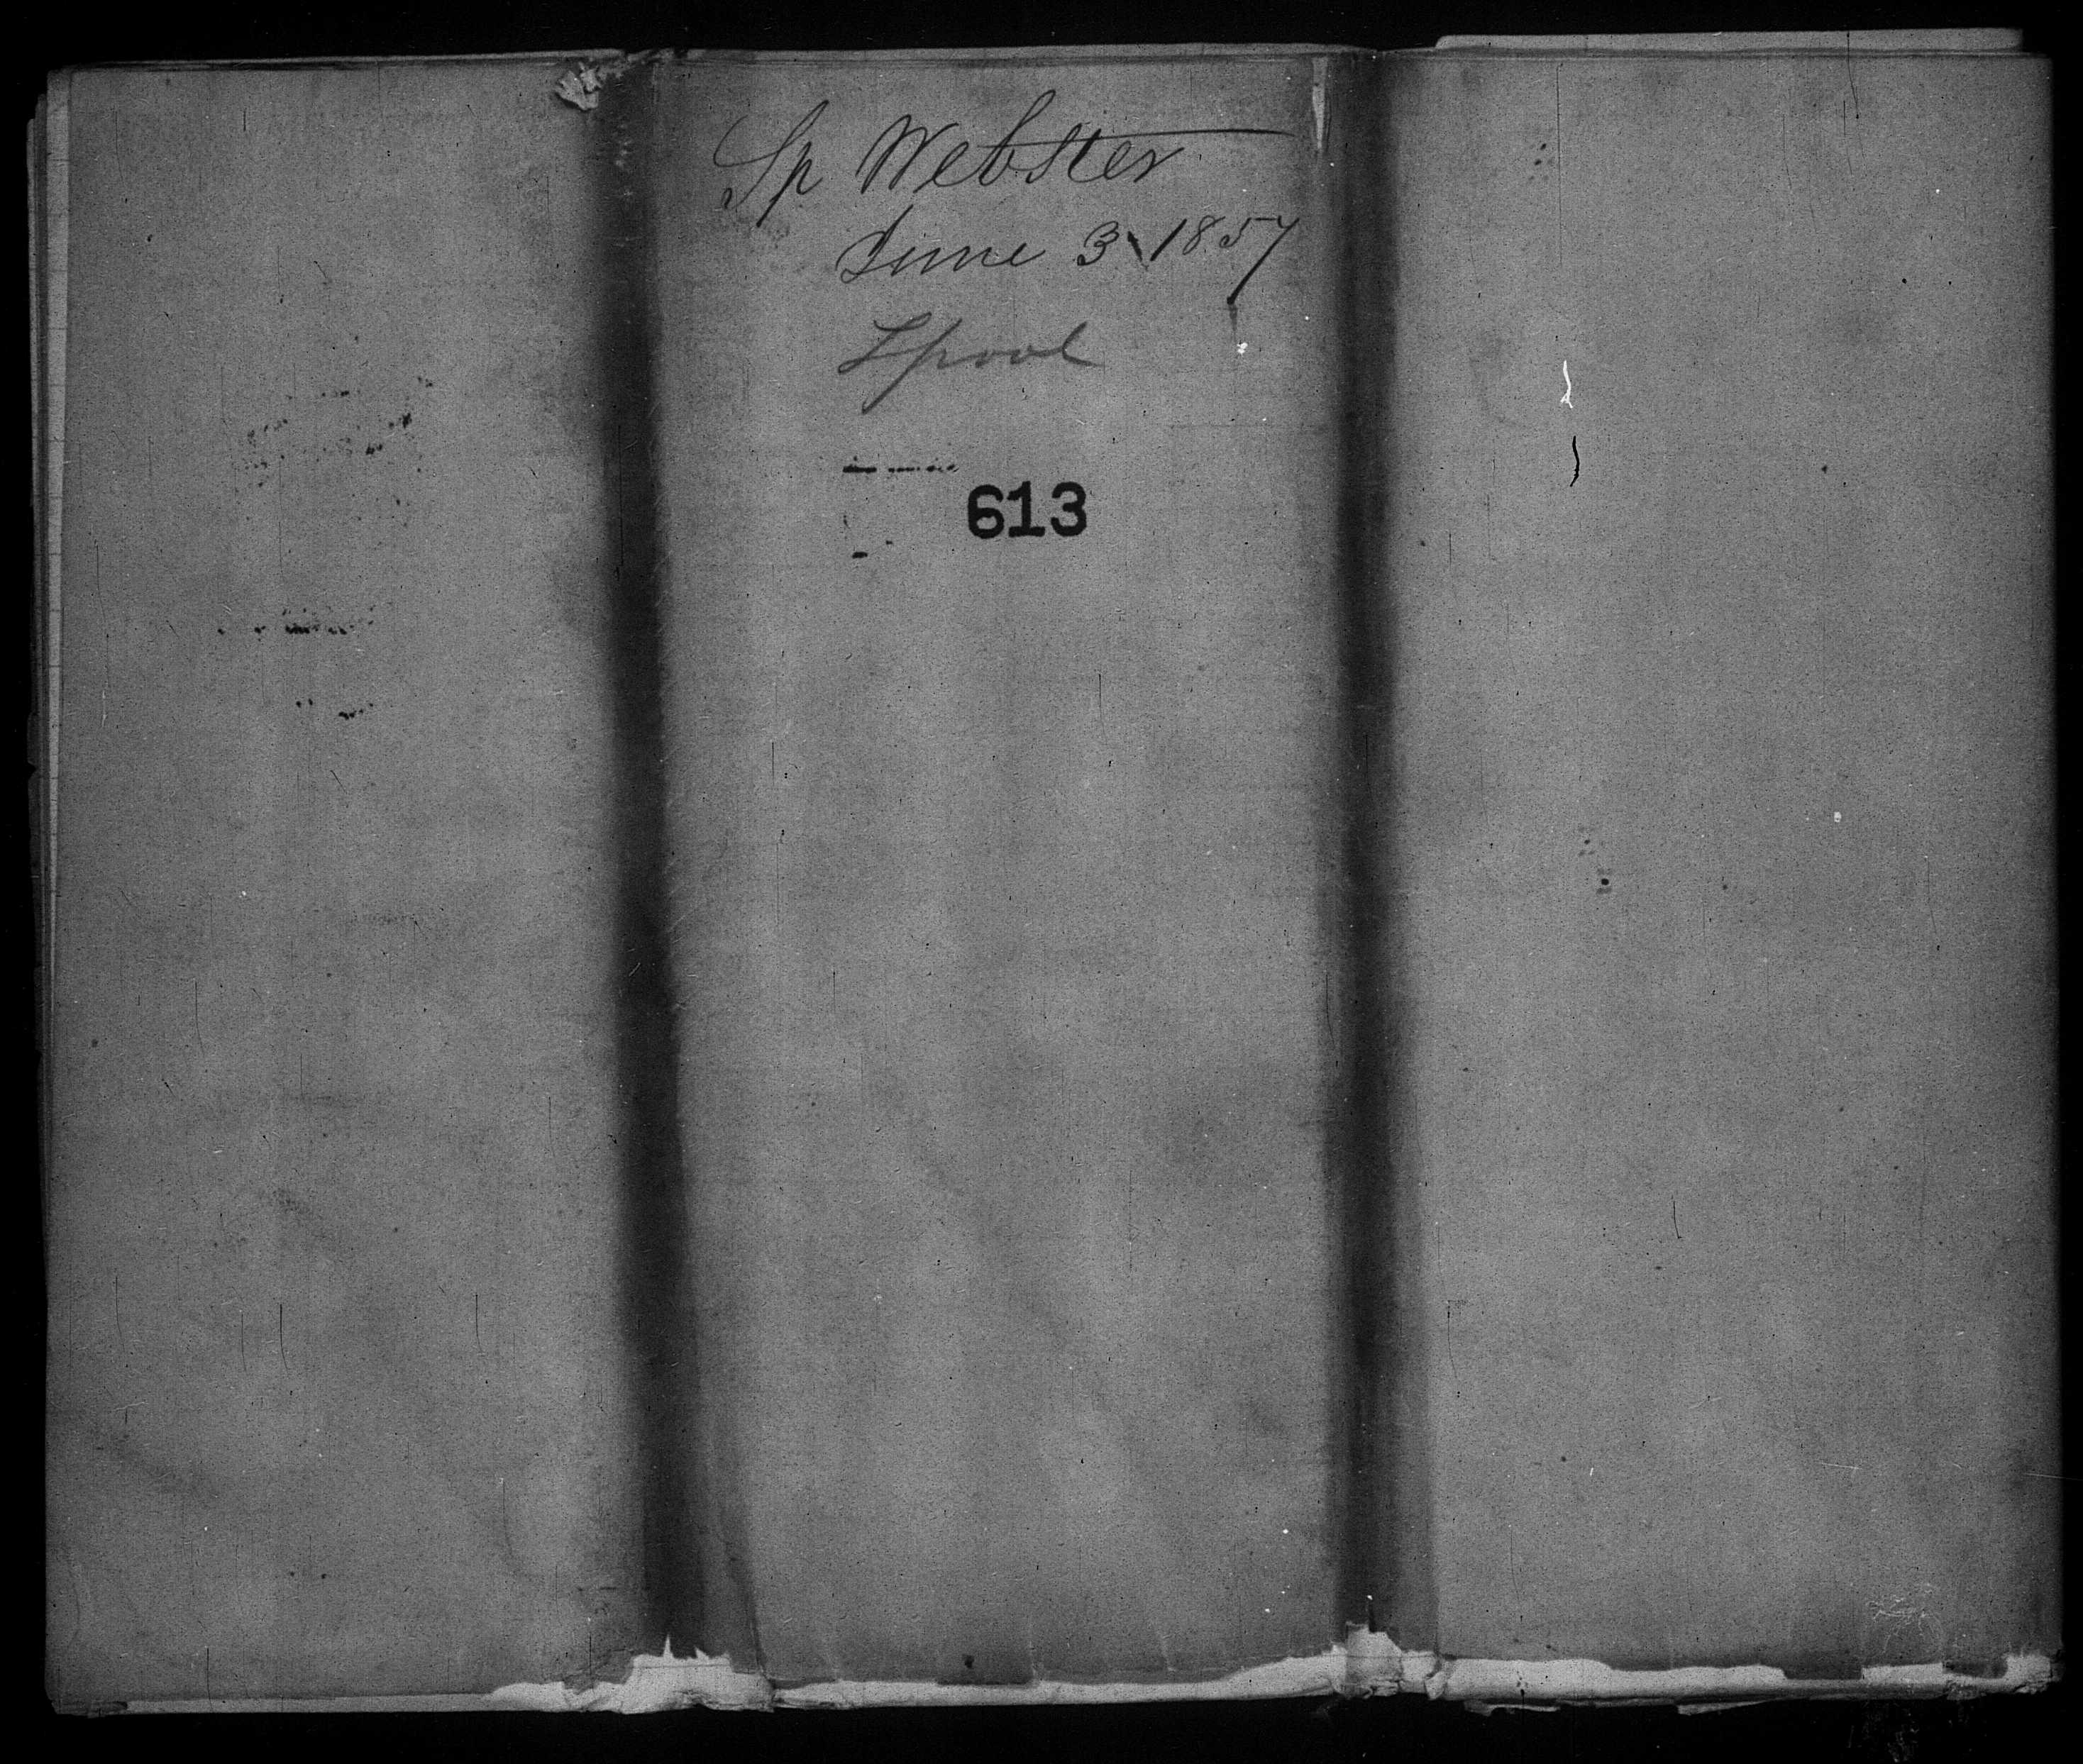 Sp Webster
June 3 1857
Lpool
613